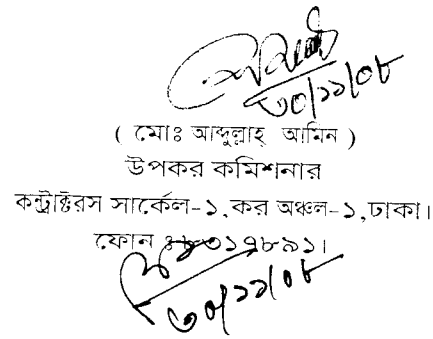 ৩০/১১/০৮
( মোঃ আব্দুল্লাহ্ আমিন )
উপকর কমিশনার
কন্ট্রাক্টরস সার্কেল-১,কর অঞ্চল-১,ঢাকা।
ফোন ঃ৮৩১৭৮৯১।
৩০/১১/০৮